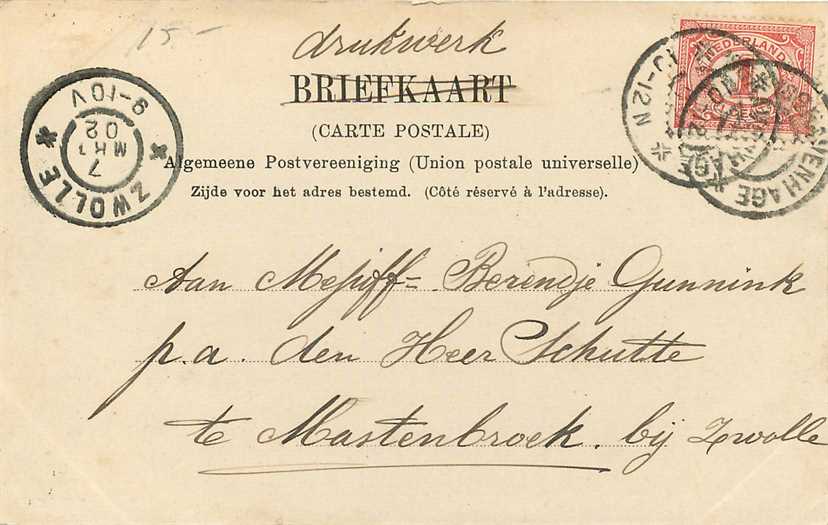 15.-
drukwerk
BRIEFKAART
(CARTE POSTALE)
Algemeene Postvereeniging (Union postale universelle)
Zijde voor het adres bestemd. (Côté réservé à l'adresse).
NEDERLAND
1
ZWOLLE
7
MRT
02
9-10V
10-12N
'SGRAVENHAGE
Aan Mejuff= Berendje Gunnink
p.a. den Heer Schutte
te Mastenbroek. bij Zwolle